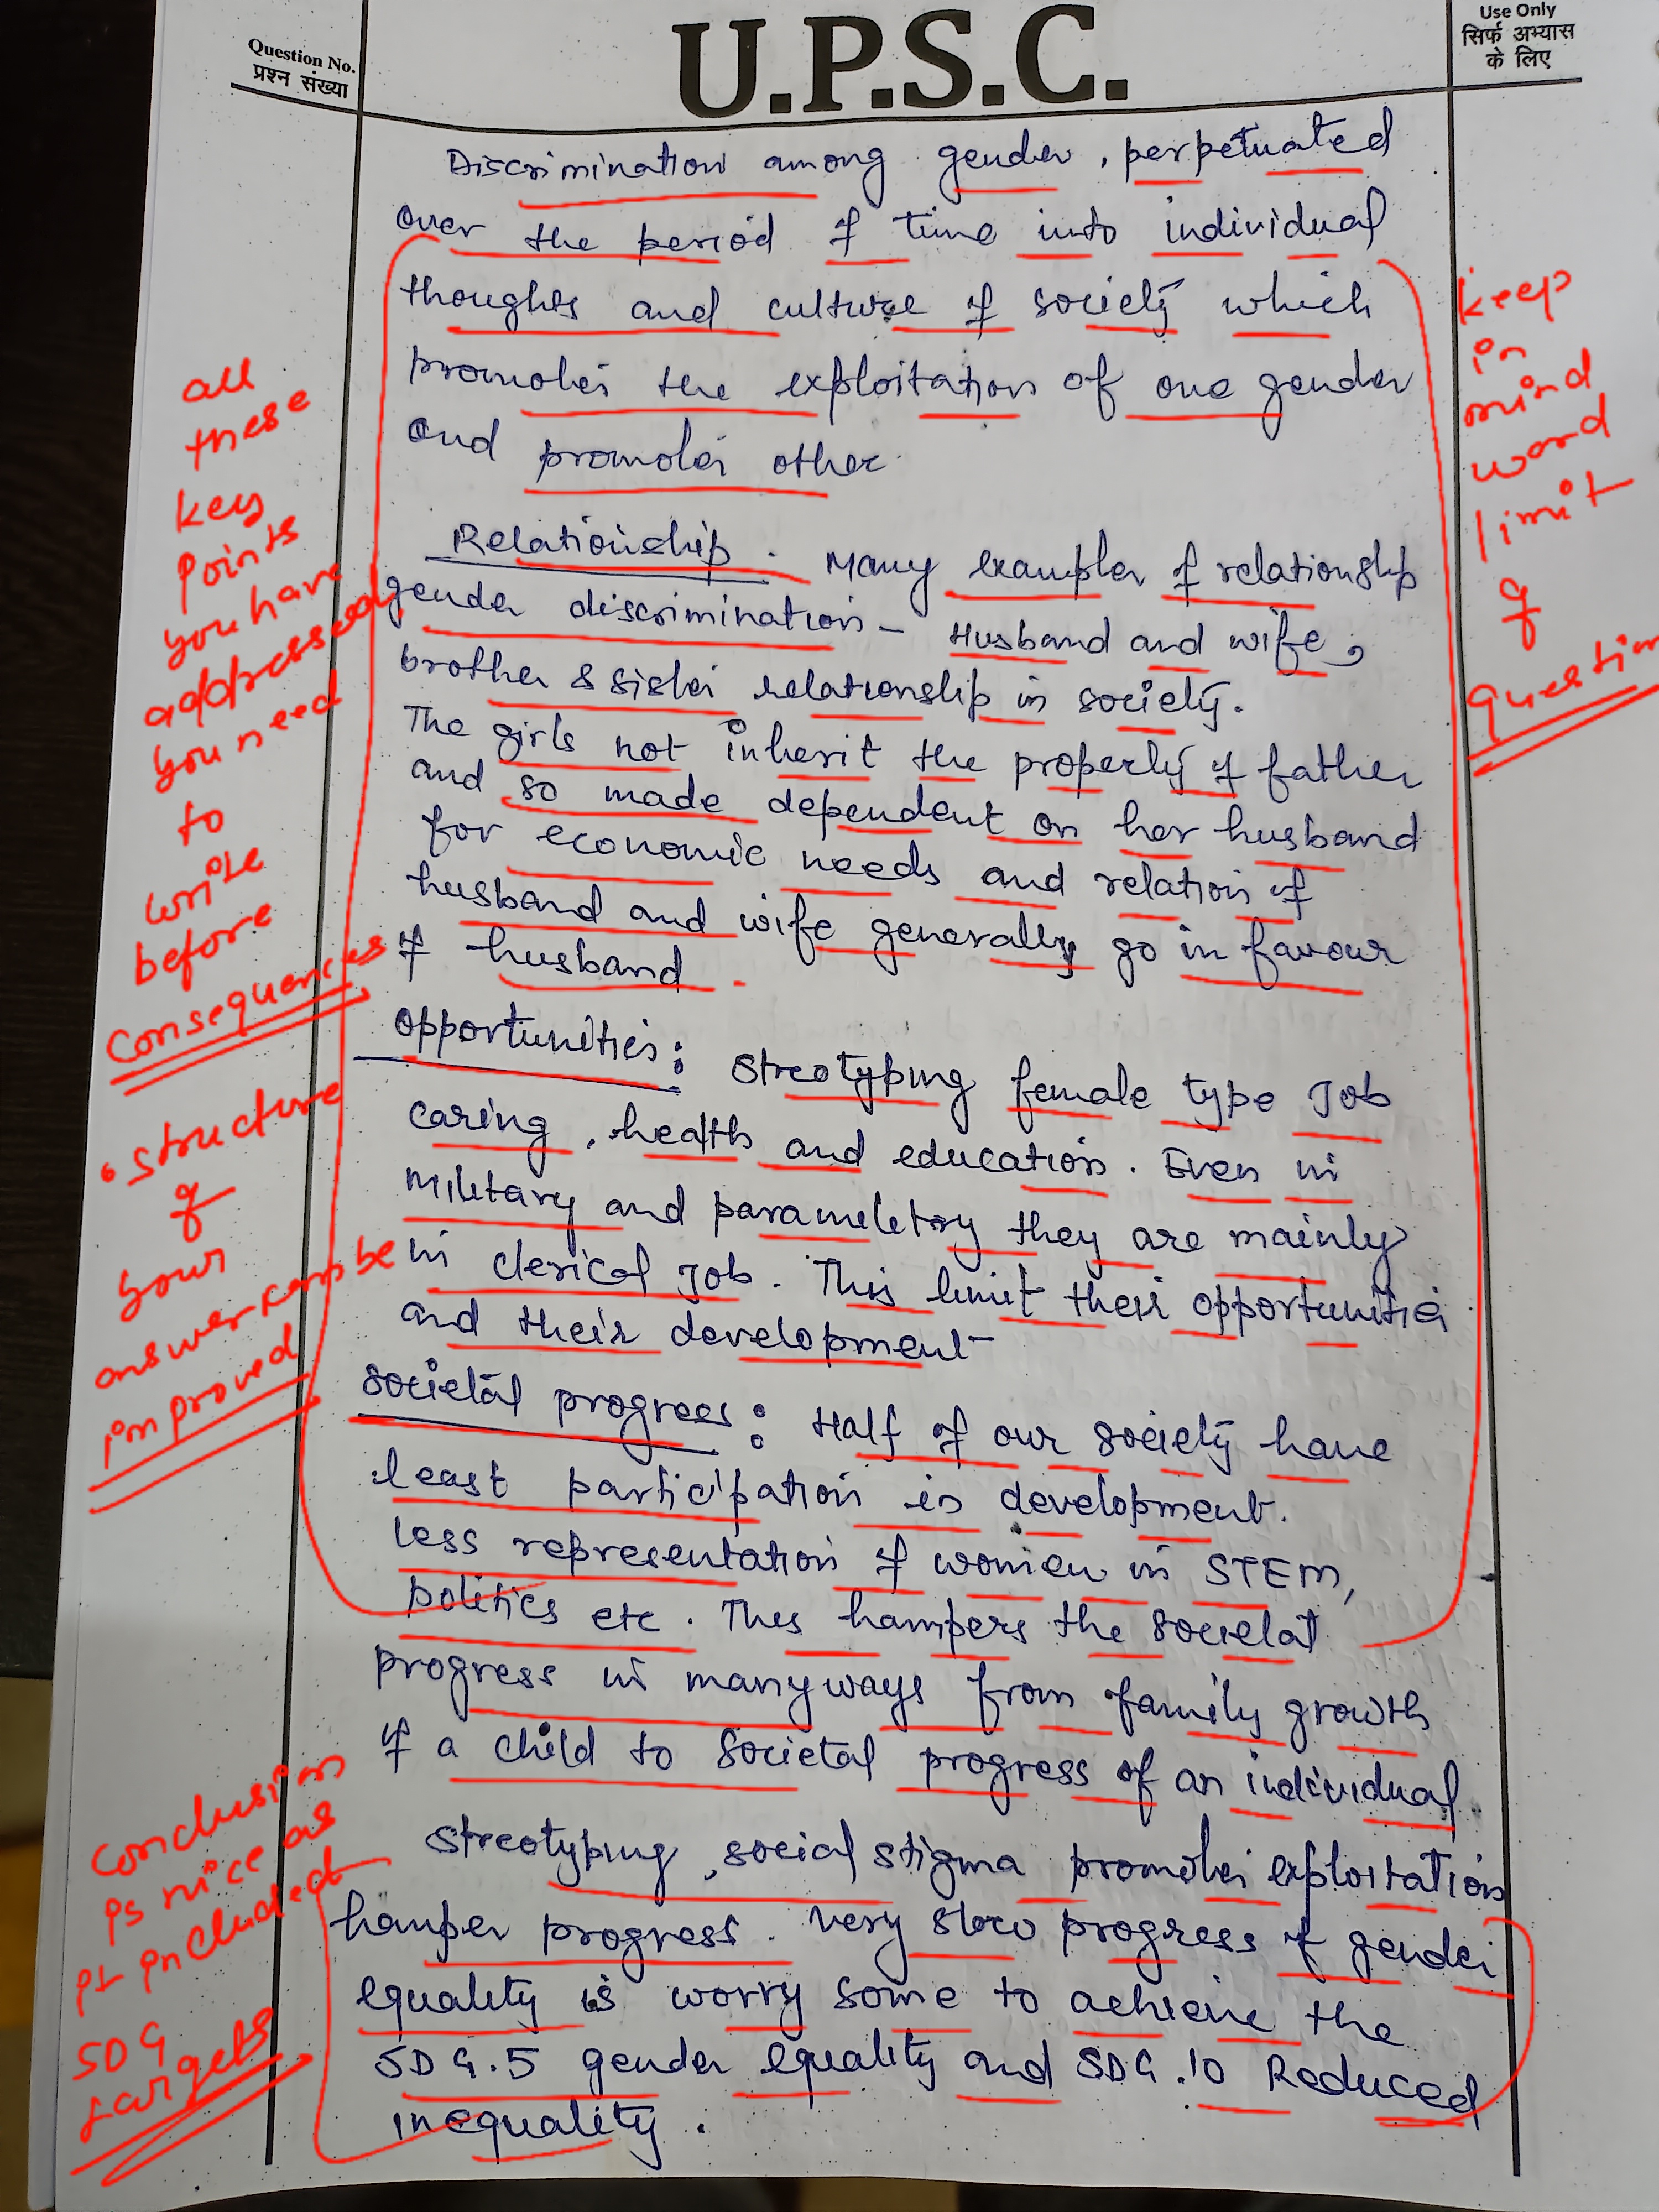 Question No.
प्रश्न संख्या
U.P.S.C.
Use Only
सिर्फ अभ्यास
के लिए
Discrimination among gender, perpetuated
over the period of time into individual
thoughts and culture of society which
promotes the exploitation of one gender
and promotes other.
Relationship. Many examples of relationship
gender discrimination - Husband and wife,
brother & sister relationship in society.
The girls not inherit the property of father
and so made dependent on her husband
for economic needs and relation of
husband and wife generally go in favour
of husband.
opportunities: Streotyping female type Job
caring, health and education. Even in
military and parameletry they are mainly
in clerical Job. This limit their opportunities
and their development
societal progress: Half of our society have
least participation in development.
less representation of women in STEM,
politics etc. This hampers the societal
progress in many ways from family growth
of a child to societal progress of an individual.
Streotyping, social stigma promotes exploitation
hamper progress. Very slow progress of gender
equality is worry some to achieve the
SDG.5 gender equality and SDG.10 Reduced
inequality.
all
these
key
points
you have
addressed
you need
to
write
before
Consequences
• structure
of
your
answer can be
improved
Conclusion
is nice as
it included
SDG
targets
keep
in
mind
word
limit
of
question